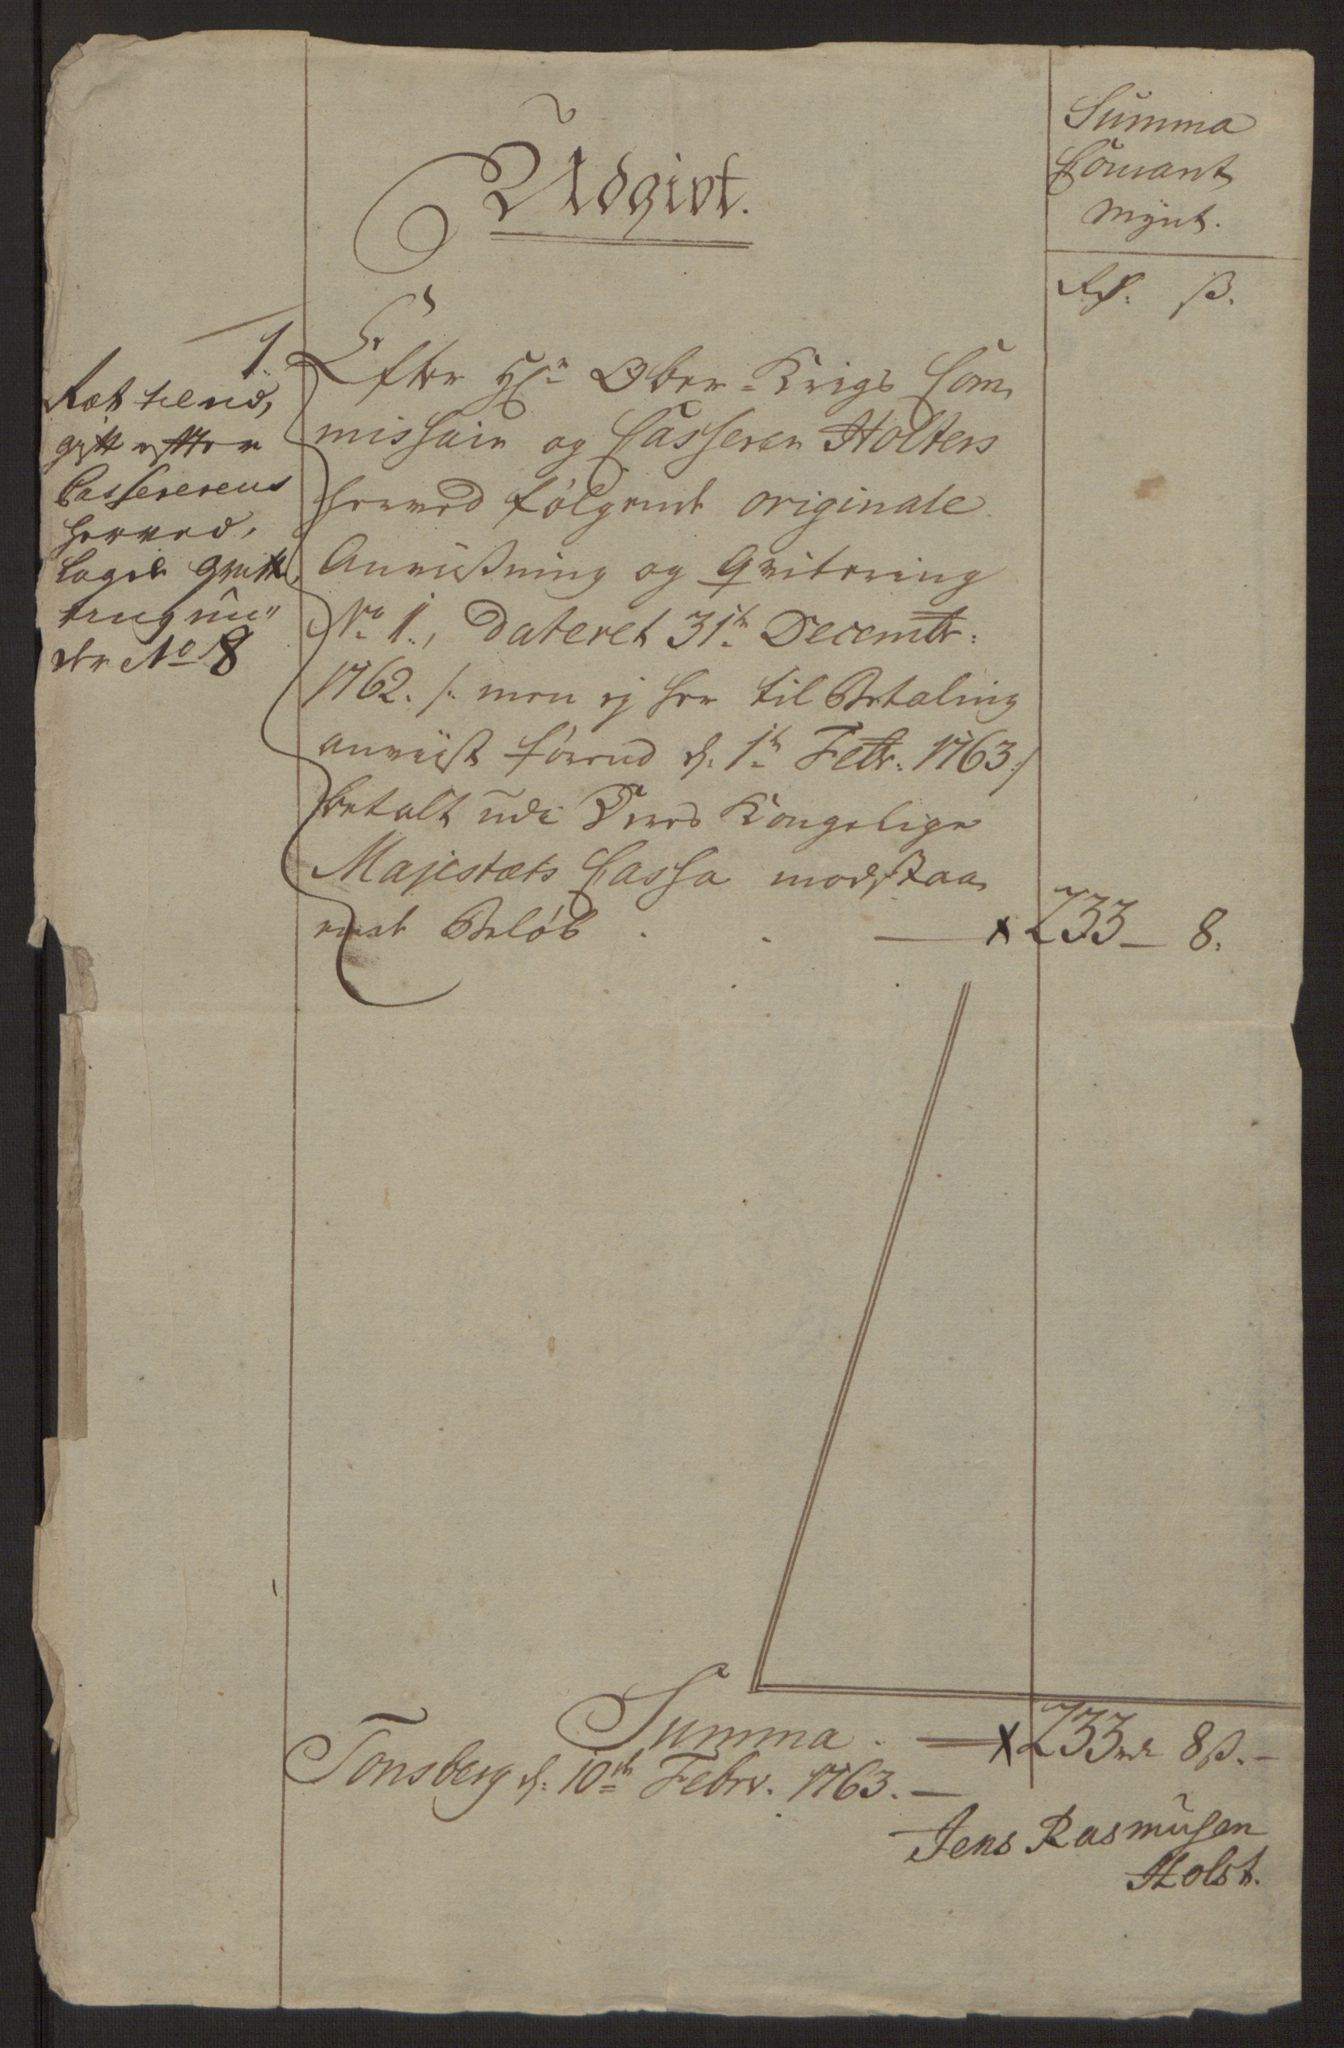 Udgivt.
Summa
Courant
Mynt.
Rd. ß.
1
Ræt til ud,
gift efter
Casserereus
herved,
lagde Qvitte,
ring un"
der No 8
Efter Hr Ober-Krigs Com,
missair og Casserer Holters
herved følgende originale
Anviisning og Qvitering
No 1., dateret 31te Decembr:
1762. /: men ej her til Betaling
anviist førend d. 1te Febr. 1763:/
betalt udi Deres Kongelige
Majestæts Cassa modstaa,
ende Beløb . . — x 233 — 8.
Summa . — x 233 rd 8 ß. —
Tonsberg d: 10de Febrv. 1763. —
Jens Rasmusen
Holst.